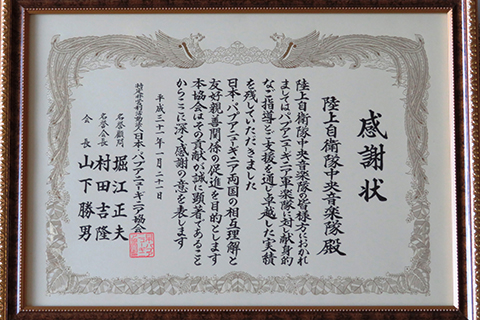 感謝状
陸上自衛隊中央音楽隊 殿
陸上自衛隊中央音楽隊の皆様方におかれ
ましてはパプアニューギニア軍楽隊に対し献身的
なご指導とご支援を通じ卓越した実績
を残していただきました
日本・パプアニューギニア両国の相互理解と
友好親善関係の促進を目的とします
本協会はその貢献が誠に顕著であること
からここに深く感謝の意を表します
平成三十一年一月二十一日
特定非営利活動法人日本・パプアニューギニア協会
名誉顧問 堀江正夫
名誉会長 村田吉隆
会長 山下勝男